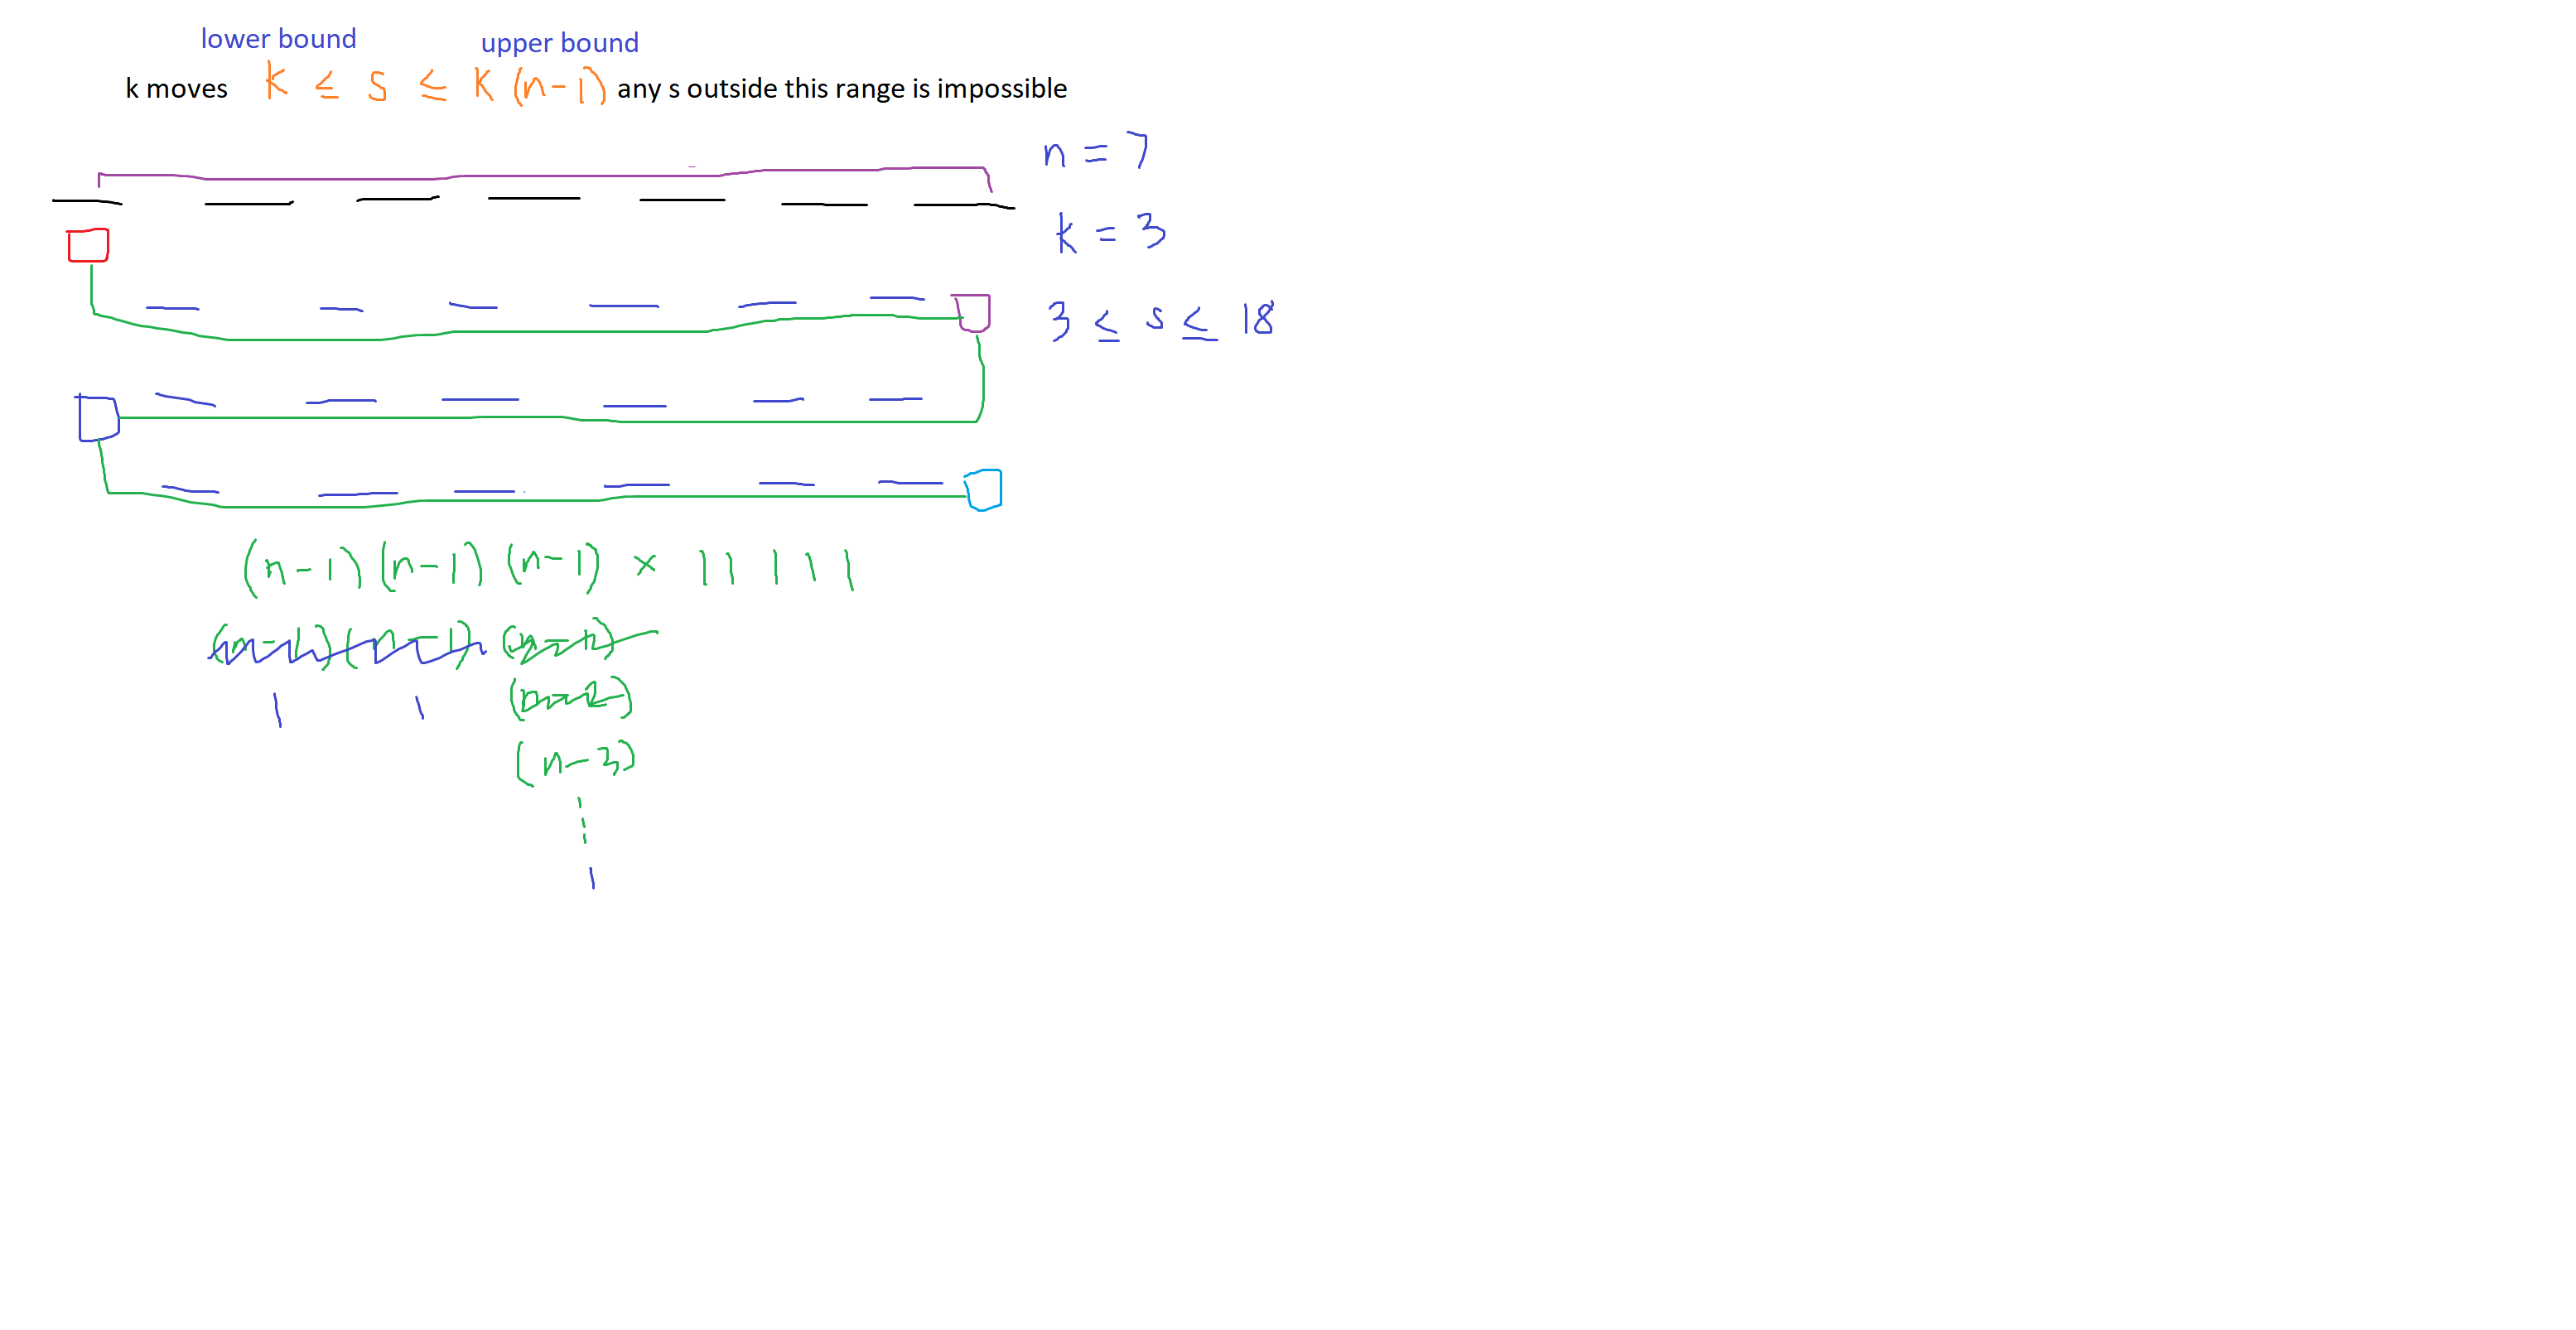 lower bound upper bound
k moves k ≤ s ≤ k (n-1) any s outside this range is impossible
n = 7
k = 3
3 ≤ s ≤ 18
(n-1) (n-1) (n-1) x 1 1 1 1 1
(n-1) (n-1) (n-1)
1 1 (n-2)
(n-3)
1